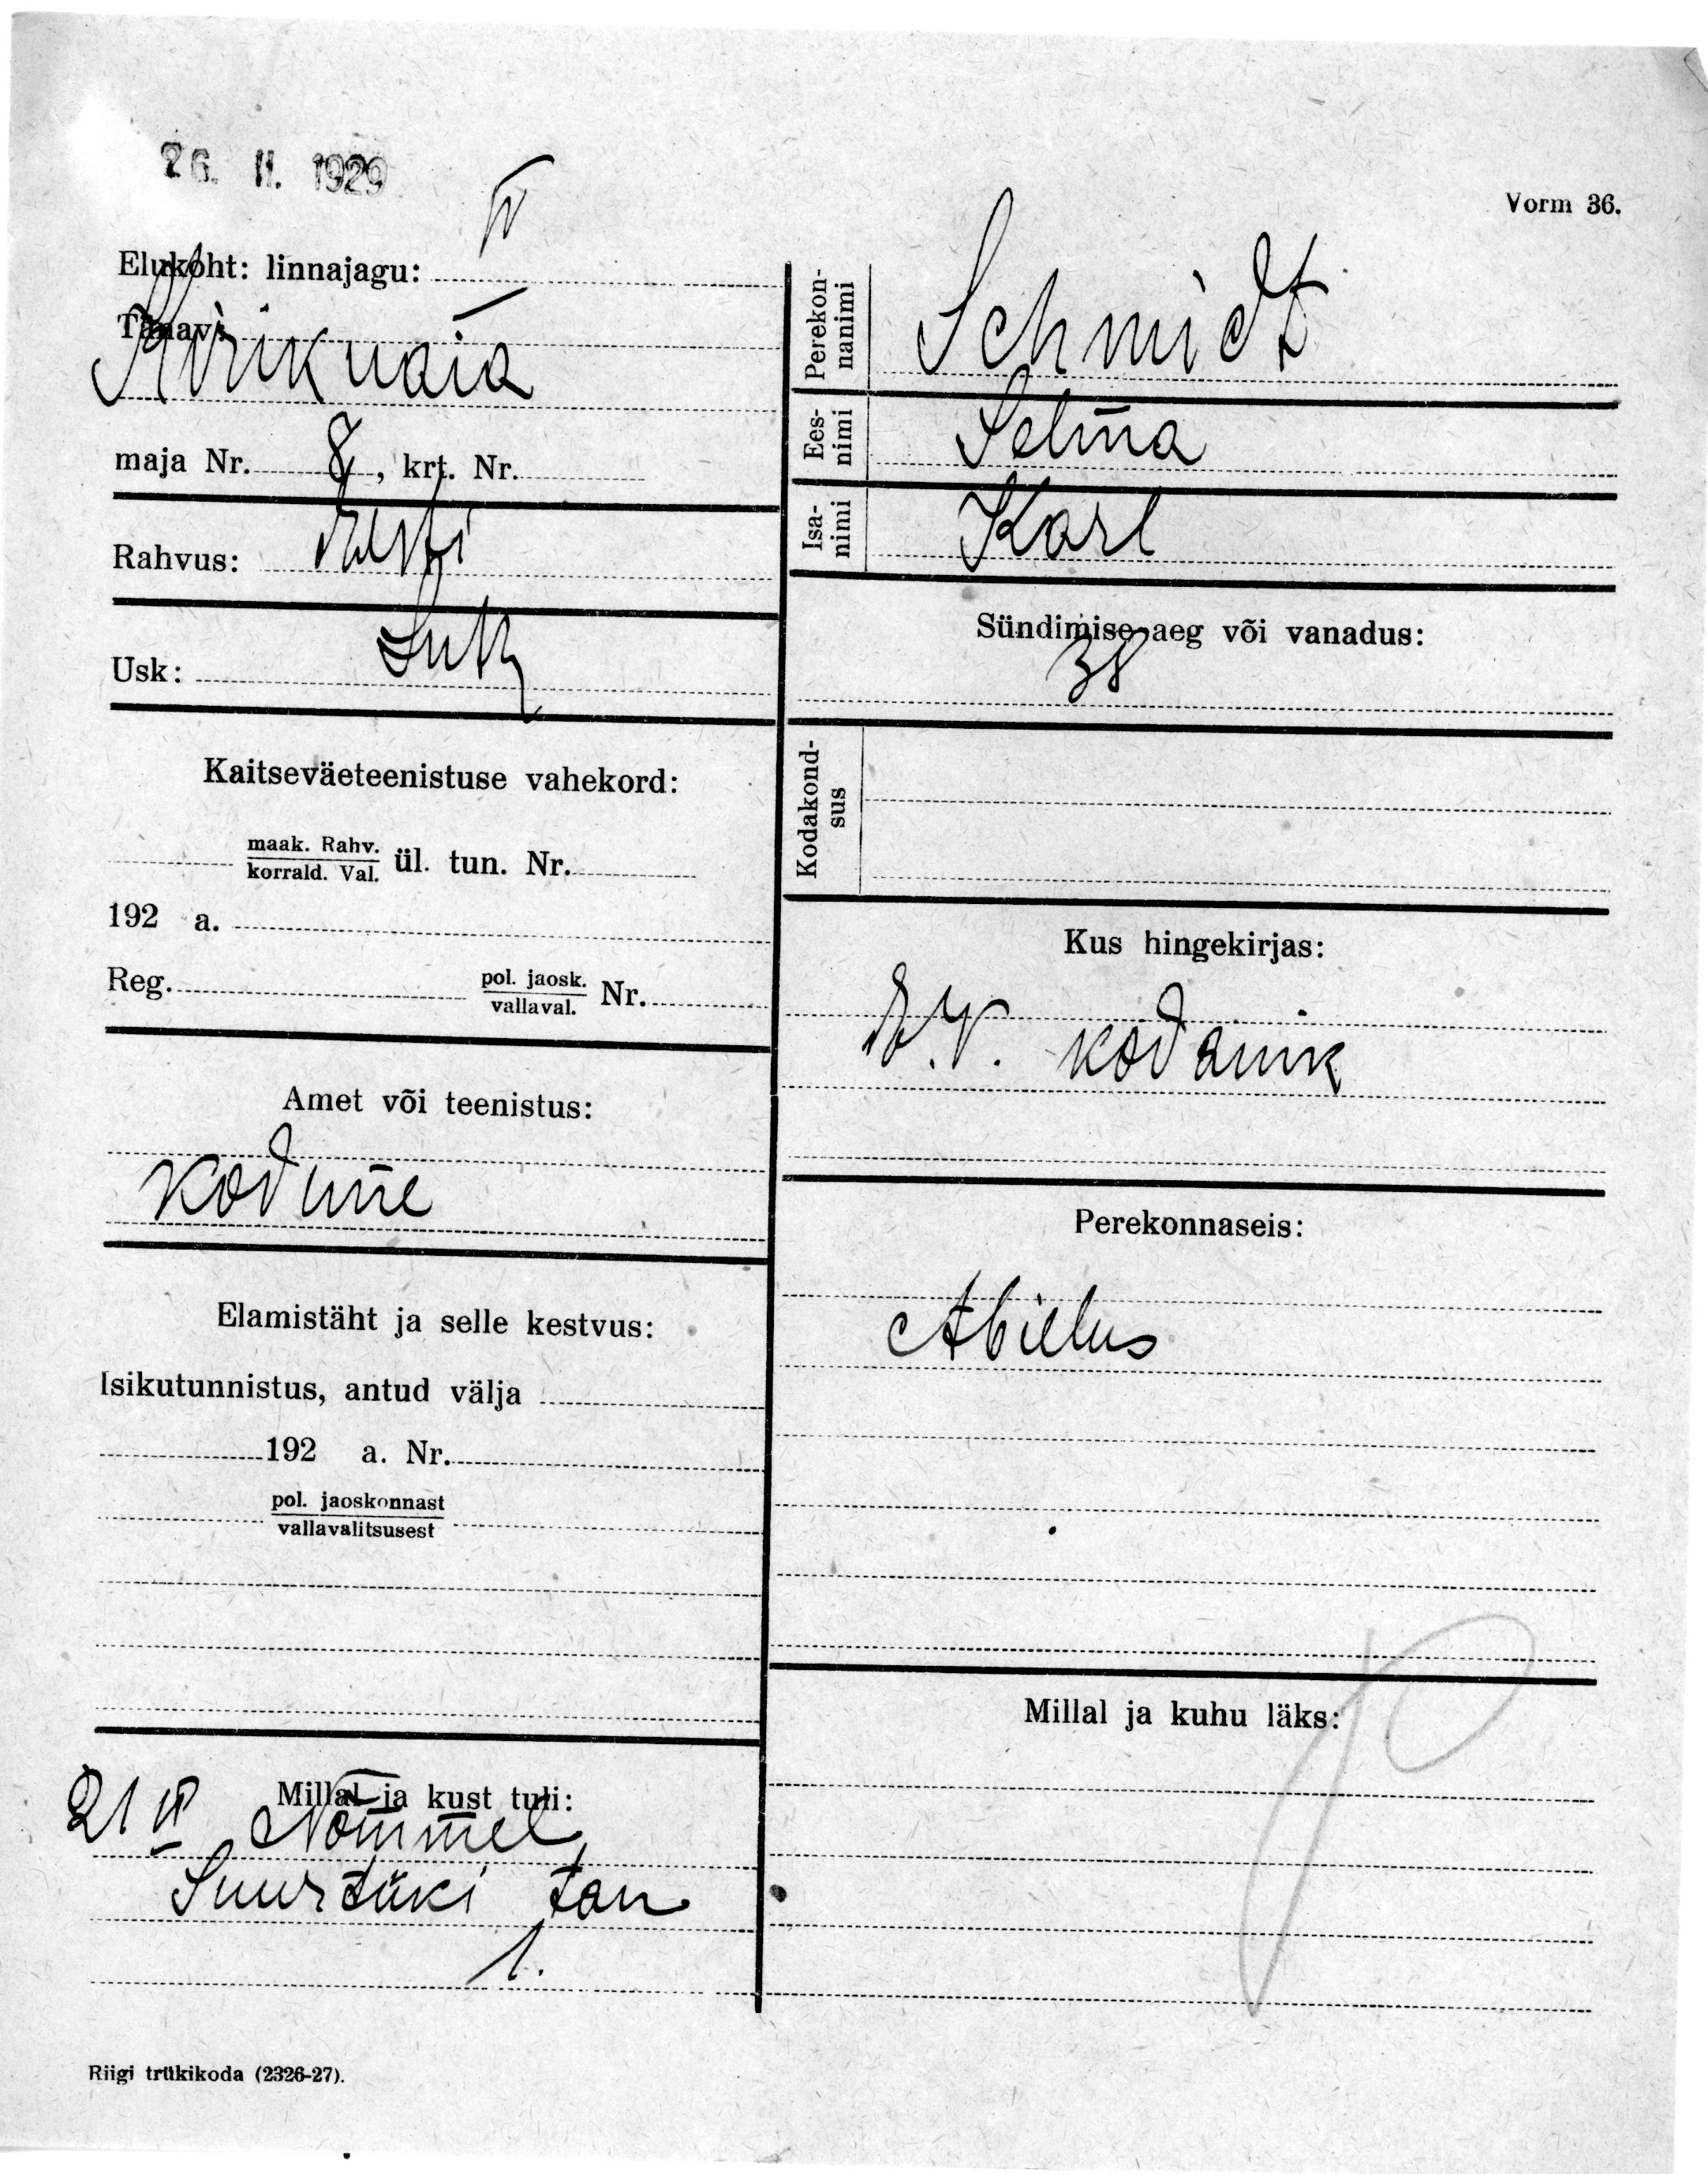 26. II. 1929
Vorm 36.
Elukoht: linnajagu: IV
Tänav:
Kiriku aia
maja Nr. 8, krt. Nr.
Rahvus: Eesti
Usk: Luth
Kaitseväeteenistuse vahekord:
maak. Rahv.
korrald. Val. ül. tun. Nr.
192 a.
Reg. pol. jaosk.
vallaval. Nr.
Amet või teenistus:
Kodune
Elamistäht ja selle kestvus:
Isikutunnistus, antud välja
192 a. Nr.
pol. jaoskonnast
vallavalitsusest
Millal ja kust tuli:
21 II Nõmmel
Suurtüki tän
1.
Perekon-
nanimi Schmidt
Ees-
nimi Selma
Isa-
nimi Karl
Sündimise aeg või vanadus:
38
Kodakond-
sus
Kus hingekirjas:
E.V. kodanik
Perekonnaseis:
Abielus
Millal ja kuhu läks:
Riigi trükikoda (2326-27).